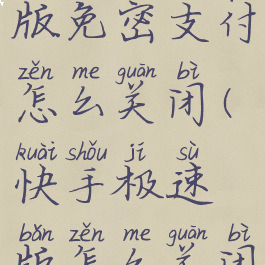 版免密支付
zěn me guān bì
怎么关闭(
kuài shǒu jí sù
快手极速
bǎn zěn me guān bì
版怎么关闭